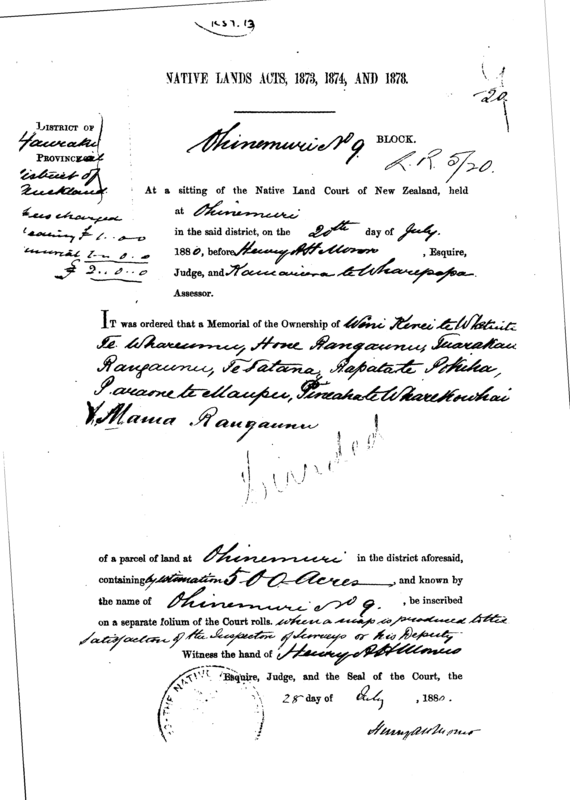 NATIVE LANDS ACTS, 1873, 1874, AND 1878.
20
DISTRICT OF
Hauraki
PROVINCial
District of
Auckland
Ohinemuri No 9. BLOCK.
L.R. 5/20.
At a sitting of the Native Land Court of New Zealand, held
at Ohinemuri
in the said district, on the 20th day of July.
1880, before Henry A H Monro, Esquire,
Judge, and te Wharepapa
Assessor.
fees charged
hearing £ 1..0..0
memorial 1..0..0
£ 2..0..0
IT was ordered that a Memorial of the Ownership of Wini Kerei te Whetuiti
Te Whareumu, Hone Rangaunu, Tuarakau
Rangaunu, Te Satana, Rapata te Pokiha,
Paraone te Maupu, Pineaha te Wharekowhai
& Mama Rangaunu
of a parcel of land at Ohinemuri in the district aforesaid,
containing by estimation 500 Acres, and known by
the name of Ohinemuri No 9., be inscribed
on a separate folium of the Court rolls. when a map is produced to the
satisfaction of the Inspector of Surveys or his Deputy
Witness the hand of Henry A H Monro
Esquire, Judge, and the Seal of the Court, the
28 day of July, 1880.
THE NATIVE
Henry A H Monro